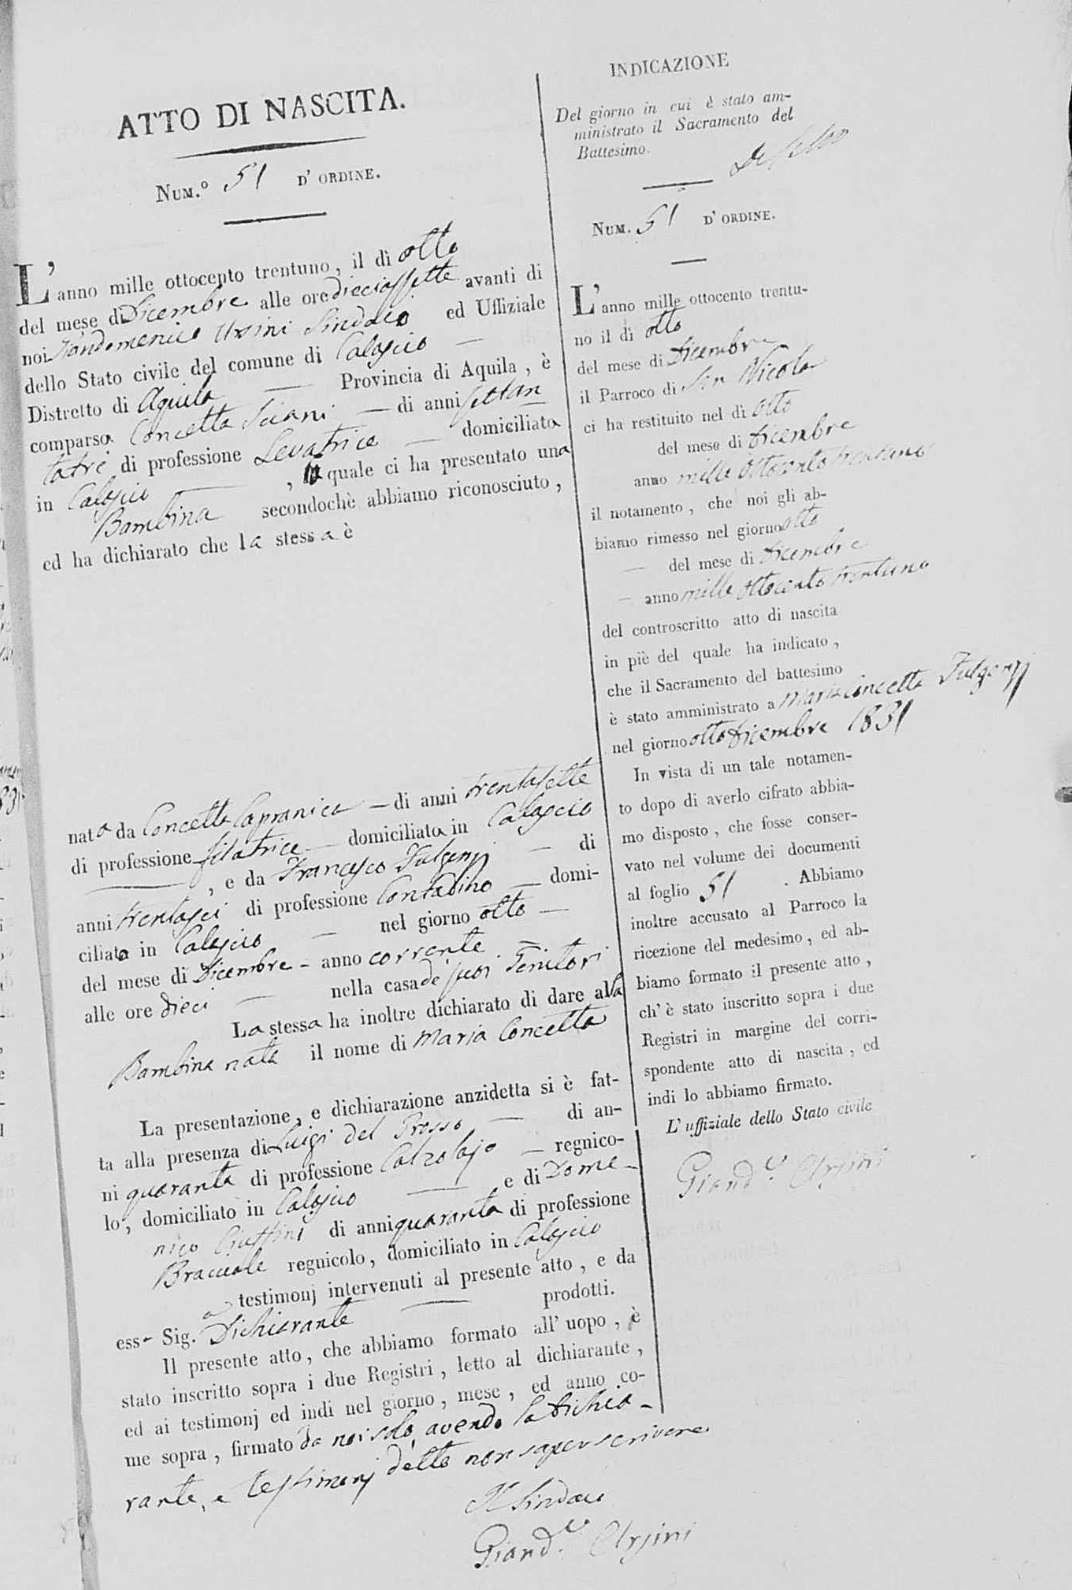 ATTO DI NASCITA.
NUM.º 51 D' ORDINE.
L' anno mille ottocento trentuno, il dì otto
del mese di Dicembre alle ore dieciassette avanti di
noi Giandomenico Ursini Sindaco ed Uffiziale
dello Stato civile del comune di Calascio —
Distretto di Aquila — Provincia di Aquila, è
comparsa Concetta Sciani — di anni settan
tatre di professione Levatrice — domiciliata
in Calascio — , la quale ci ha presentato una
Bambina secondochè abbiamo riconosciuto,
ed ha dichiarato che la stessa è
nata da Concetta Capranica — di anni trentasette
di professione filatrice — domiciliata in Calascio
— , e da Francesco Fulgenzj — di
anni trentasei di professione Contadino — domi-
ciliato in Calascio — nel giorno otto —
del mese di Dicembre — anno corrente —
alle ore dieci — nella casa de suoi Genitori
La stessa ha inoltre dichiarato di dare alla
Bambina nata il nome di Maria Concetta
La presentazione, e dichiarazione anzidetta si è fat-
ta alla presenza di Luigi del Grosso — di an-
ni quaranta di professione Calzolajo — regnico-
lo, domiciliato in Calascio — e di Dome-
nico di anni quaranta di professione
Bracciale regnicolo, domiciliato in Calascio
testimonj intervenuti al presente atto, e da
essa Sig.a Dichiarante — prodotti.
Il presente atto, che abbiamo formato all' uopo, è
stato inscritto sopra i due Registri, letto al dichiarante,
ed ai testimonj ed indi nel giorno, mese, ed anno co-
me sopra, firmato da noi solo, avendo la dichia-
rante, e testimonj detto non saper scrivere
Il Sindaco
Giand.co Ursini
INDICAZIONE
Del giorno in cui è stato am-
ministrato il Sacramento del
Battesimo.
NUM. 51 D' ORDINE.
L' anno mille ottocento trentu-
no il di otto
del mese di Dicembre
il Parroco di San Nicola
ci ha restituito nel dì otto
del mese di Dicembre
anno mille ottocento trentuno
il notamento, che noi gli ab-
biamo rimesso nel giorno otto
— del mese di Dicembre
— anno mille ottocento trentuno
del controscritto atto di nascita
in piè del quale ha indicato,
che il Sacramento del battesimo
è stato amministrato a Maria Concetta Fulgenzj
nel giorno otto Dicembre 1831
In vista di un tale notamen-
to dopo di averlo cifrato abbia-
mo disposto, che fosse conser-
vato nel volume dei documenti
al foglio 51 . Abbiamo
inoltre accusato al Parroco la
ricezione del medesimo, ed ab-
biamo formato il presente atto,
ch' è stato inscritto sopra i due
Registri in margine del corri-
spondente atto di nascita, ed
indi lo abbiamo firmato.
L' uffiziale dello Stato civile
Giand.co Ursini